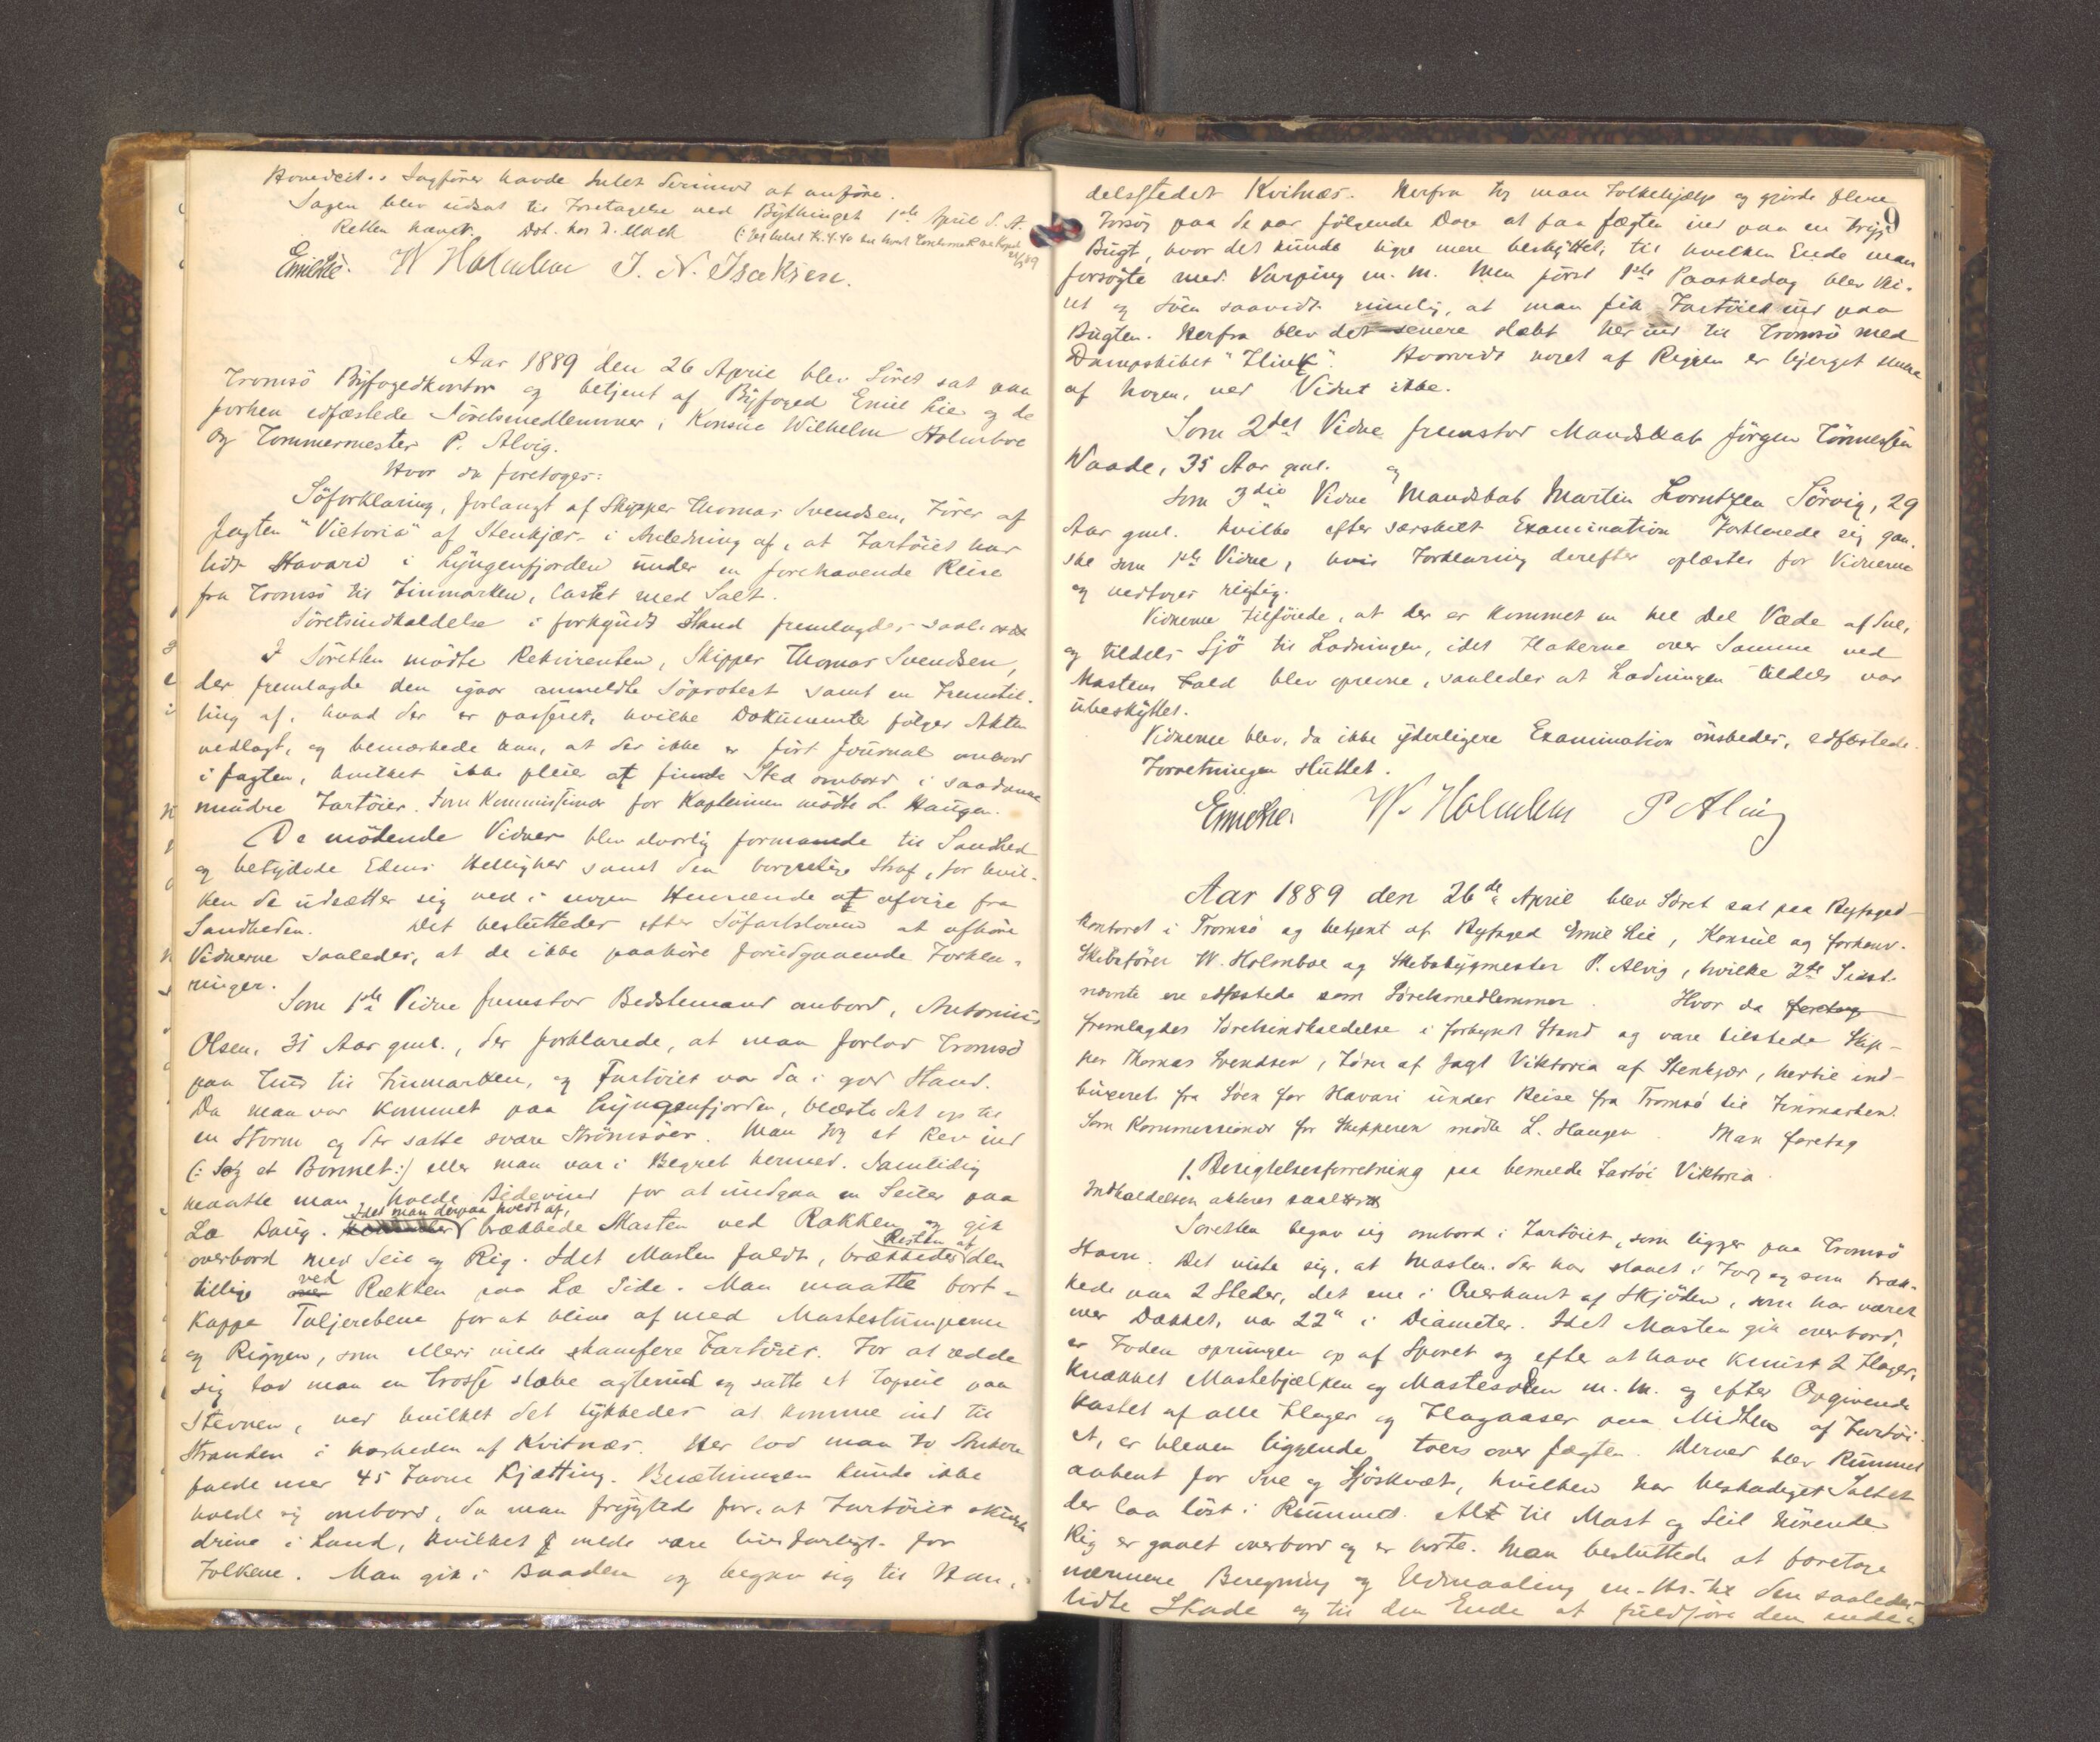 Sagfører havde Intet at anføre.
Sagen blev udsat til Foretagelse ved Bythinget 1ste April d. A.
Retten hævet. Dok. hos d. Mack
Emil Lie. W Holmboe J. N. Isaksen.
Aar 1889 den 26 April blev Søret sat paa
Tromsö Byfogedkontor og betjent af Byfoged Emil Lie og de
forhen edfæstede Söretsmedlemmer, Konsul Wilhelm Holmboe
og Tømmermester P. Alvig.
Hvor da foretoges:
Söforklaring, forlangt af Skipper Thomas Svendsen, Fører af
Jagten "Victoria" af Stenkjær i Anledning af, at Fartöiet har
lidt Havari i Lyngenfjorden under en forehavende Reise
fra Tromsö til Finmarken, lastet med Salt.
Söretsindkaldelse i forkyndt Stand fremlagdes saal.
I Söretten mödte Rekvirenten, Skipper Thomas Svendsen,
der fremlagde den igaar anmeldte Söprotest samt en Fremstil-
ling af, hvad der er passeret, hvilke Dokumenter fölger Akten
vedlagt, og bemærkede han, at der ikke er fört Journal ombord
i Jagten, hvilket ikke pleier at finde Sted ombord i saadanne
mindre Fartöier. Som Kommissionær for Kapteinen mödte L. Haugen.
De mötende Vidner blev alvorlig formanede til Sandhed
og betydede Edens Hellighed samt den borgerlige Straf, for hvil-
ken de udsætter sig ved i nogen Henseende at afvige fra
Sandheden. Det besluttedes efter Söfartsloven at afhöre
Vidnerne saaledes, at de ikke paahöre forudgaaende Forkla-
ringer.
Som 1ste Vidne fremstod Bedstemand ombord, Antonius
Olsen, 31 Aar gml., der forklarede, at man forlod Tromsö
paa til Finmarken, og Fartöiet var da i god Stand.
Da man var kommet paa Lyngenfjorden, blæste det op til
en Storm og der satte svære Strömsöer. Man tog et Rev ind
(: tog et Bonnet:) eller man var i Begreb hermed. Samtidig
maatte man holde Bidevind for at undgaa en Seiler paa
Læ Boug. Idet man derpaa holdt af, brækkede Masten ved Rakken og gik
overbord med Seil og Rig. Idet Masten faldt, brækkedes Resten af den
tillige ved Rækken paa Læ Side. Man maatte bort-
kappe Taljerebene for at blive af med Mastestumpene
og Riggen, som ellers vilde skamfere Fartöiet. For at redde
sig lod man en Trosse slæbe agterud og satte et Topseil paa
Stevnen, ved hvilket det lykkedes at komme ind til
Stranden i nærheden af Kvitnæs. Her lod man to Ankere
falde med 45 Favne Kjætting. Besætningen kunde ikke
holde sig ombord, da man frygtede for, at Fartöiet skulde
drive i Land, hvilket vilde være livsfarligt for
Folkene. Man gik i Baaden og begav sig til Han-
9
delsstedet Kvitnæs. Herfra tog man Folkehjælp og gjorde flere
Forsög paa de par fölgende Dage at faa Jægten ind paa en tryg
Bugt, hvor det kunde ligge mere beskyttet, til hvilken Ende man
forsögte med Varping m. m. Men först 1ste Paaskedag blev Vei-
ret og Söen saavidt rimelig, at man fik Fartöiet ind paa
Bugten. Herfra blev det senere slæbt her ind til Tromsö med
Dampskibet "Flink". Hvorvidt noget af Riggen er bjerget senere
af nogen, ved Vidnet ikke.
Som 2det Vidne fremstod Mandskab Jörgen Tönnessen
Waade, 35 Aar gml. og
som 3die Vidne Mandskab Martin Lorntzen Sörvig, 29
Aar gml. hvilke efter særskilt Examination forklarede sig gan-
ske som 1ste Vidne, hvis Forklaring derefter oplæstes for Vidnerne
og vedtoges rigtig.
Vidnerne tilföiede, at der er kommet en hel Del Væde af Sne,
og tildels Sjö til Ladningen, idet Flakerne over Samme ved
Mastens Fald blev oprevne, saaledes at Ladningen tildels var
ubeskyttet.
Vidnerne blev, da ikke yderligere Examination önskedes, edfæstede.
Forretningen sluttet.
Emil Lie. W. Holmboe P Alvig
Aar 1889 den 26de April blev Söret sat paa Byfoged-
kontoret i Tromsö og betjent af Byfoged Emil Lie, Konsul og forhenv.
Skibsförer W. Holmboe og Skibsbygmester P. Alvig, hvilke 2de Sidst-
nævnte ere edfæstede som Söretsmedlemmer. Hvor da foretog
fremlagdes Söretsindkaldelse i forkyndt Stand og vare tilstede Skip-
per Thomas Svendsen, Förer af Jagt Viktoria af Stenkjær, hertil ind-
buxeret fra Söen for Havari under Reise fra Tromsö til Finmarken.
Som Kommissionær for Skipperen mödte L. Haugen. Man foretog
1. Besigtelsesforretning paa bemeldte Fartöi Viktoria.
Indkaldelsen akteres saal.
Söretten begav sig ombord i Fartöiet, som ligger paa Tromsö
Havn. Det viste sig, at Masten, der har staaet i og som bræk-
kede paa 2 Steder, det ene i Overkant af Skjöden, som har været
over Dækket, var 22" i Diameter. Idet Masten gik overbord,
er Foden sprungen op af Sporet og efter at have knust 2 Flager,
knækket Mastebjælken og Mastesolen m. m. og efter Opgivende
kastet af alle Flager og Flagaaser paa Midten af Fartöi-
et, er bleven liggende tvers over Jægten. Herved blev Rummet
aabent for Sne og Sjöskvæt, hvilken har beskadiget Saltet
der laa löst i Rummet. Alt til Mast og Seil hörende
Rig er gaaet overbord og er borte. Man besluttede at foretage
nærmere Beregning og Udmaaling m. H. t. den saaledes
lidte Skade og til den Ende at fuldföre den